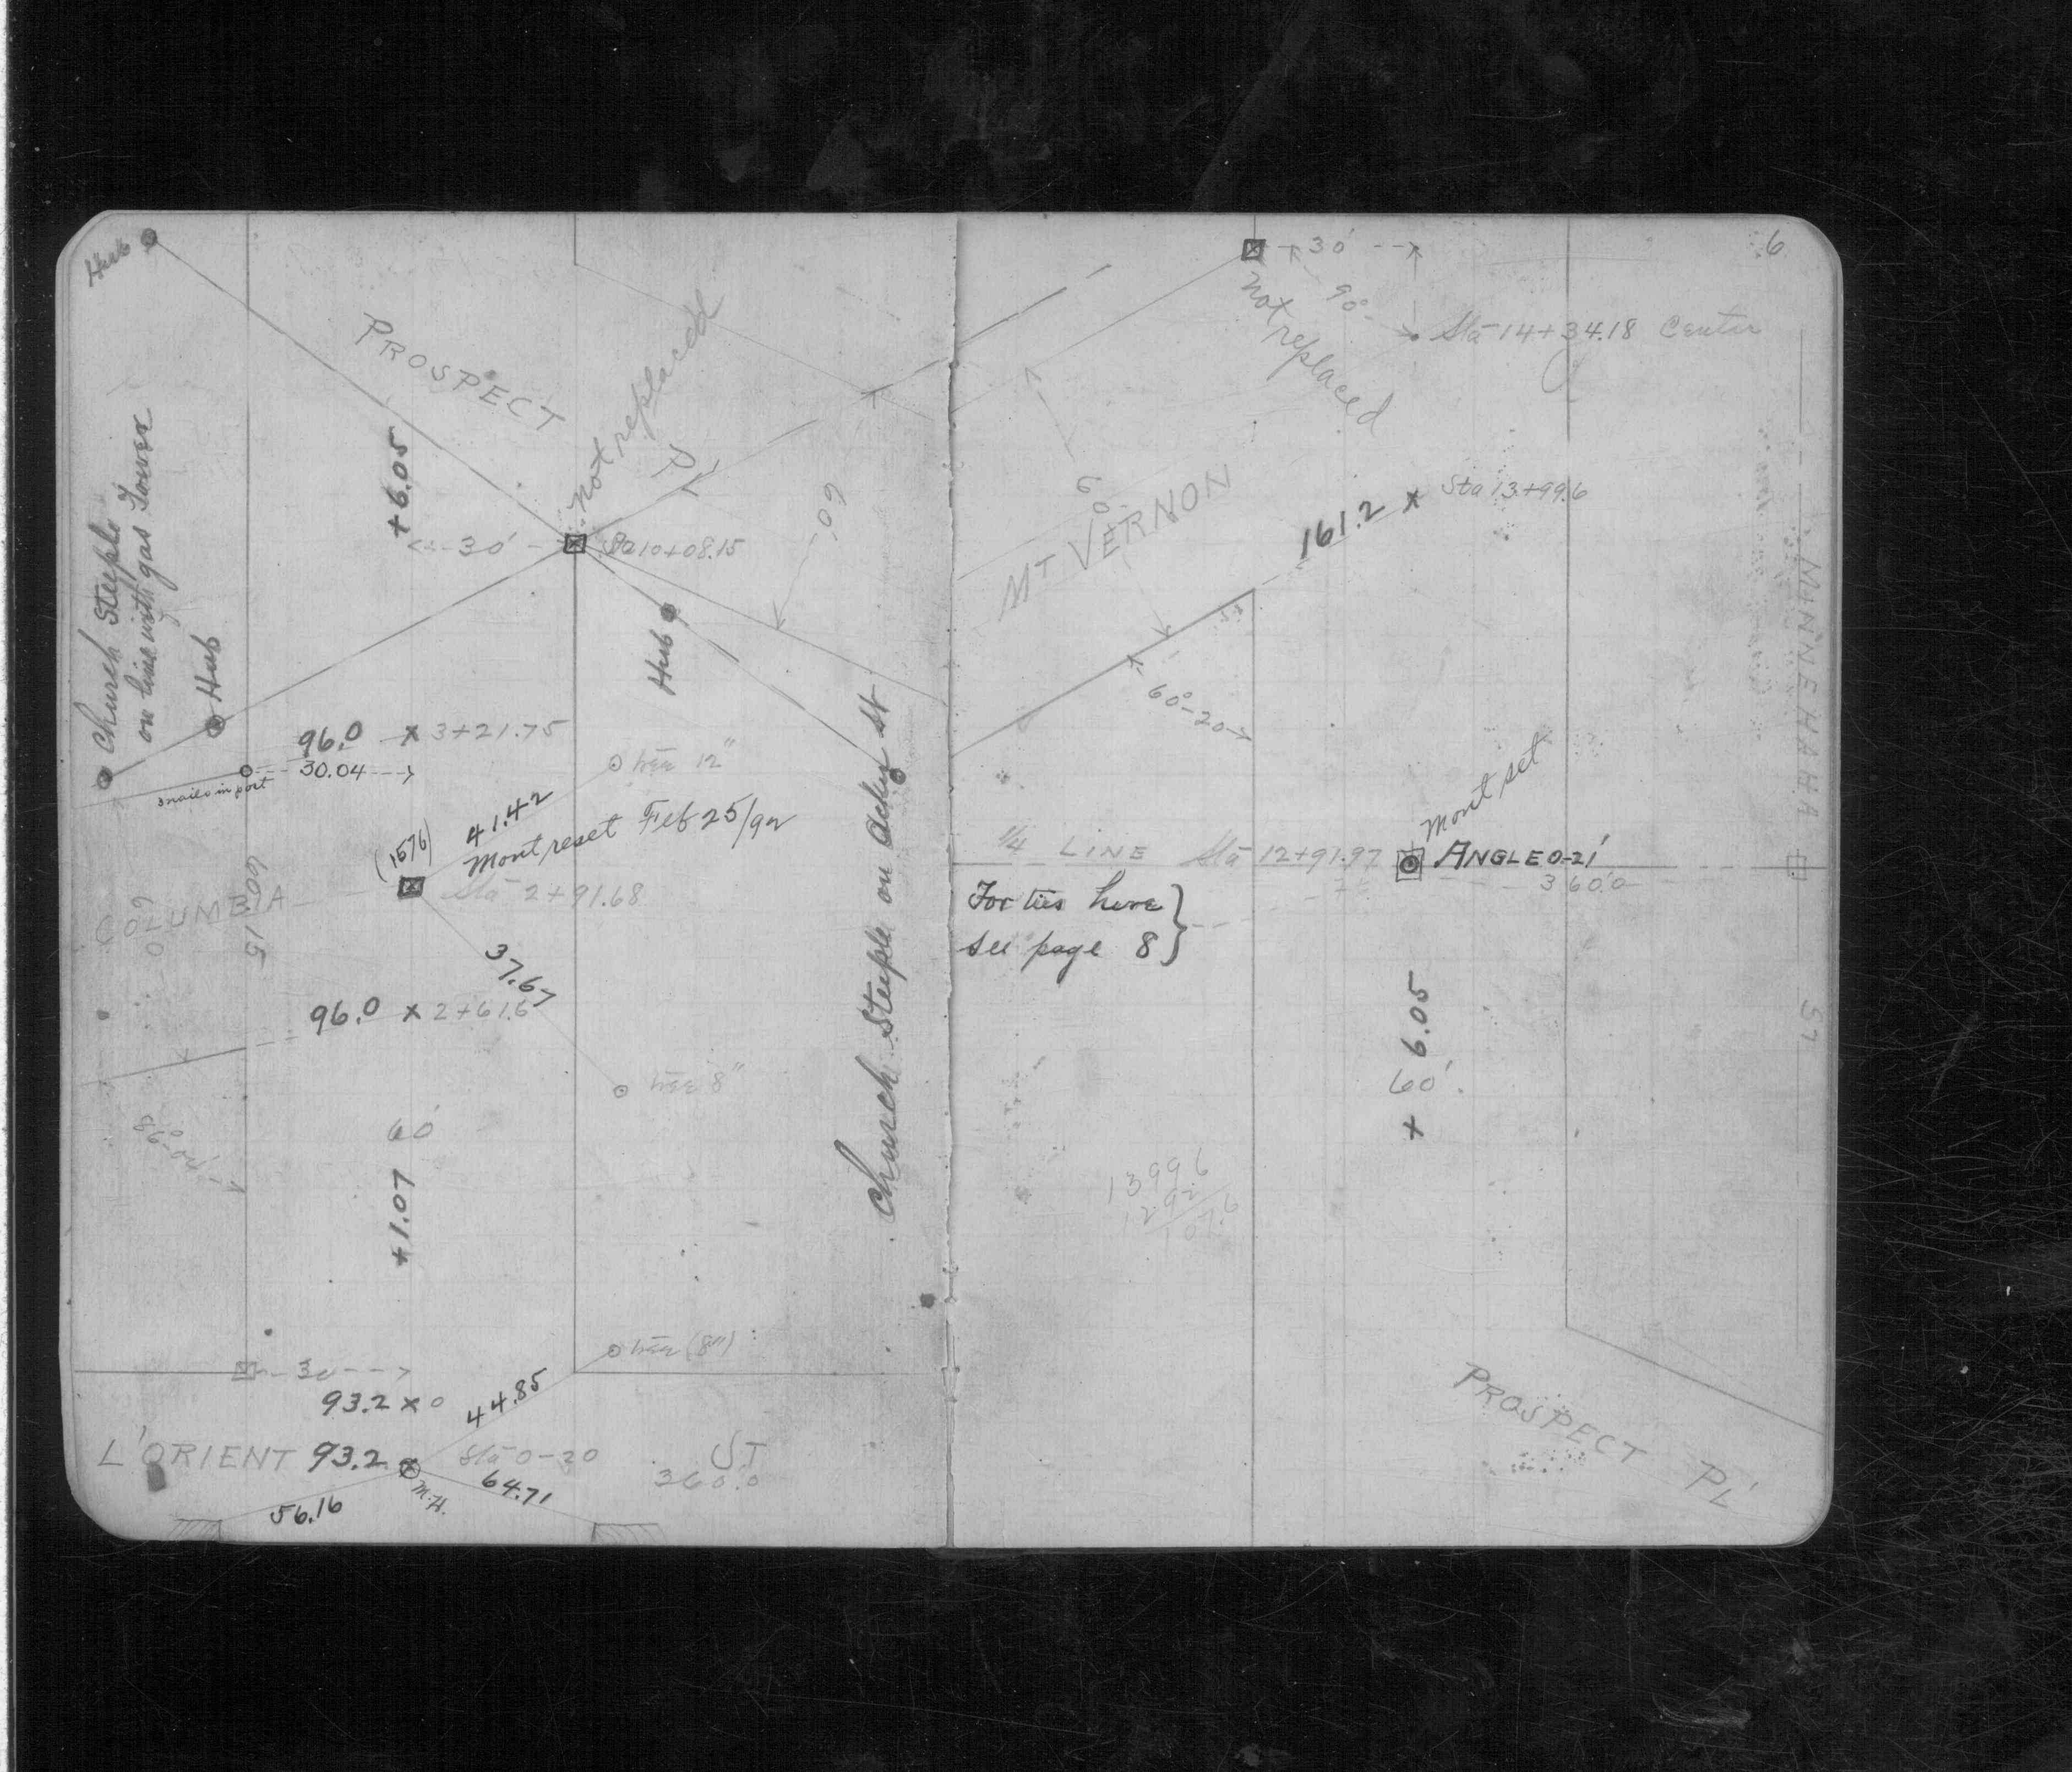 Hub
PROSPECT
PL
Not replaced
+6.05
60'
30'
Sta 10+08.15
Church Steeple
on line with gas Tower
Hub
Hub
96.0 x 3+21.75
30.04
3 nails in post
tree 12"
41.42
(1576)
Mont reset Feb 25/92
Sta 2+91.68
COLUMBIA
60
609.15
37.67
96.0 x 2+61.6
tree 8"
86°04'
60'
+1.07
Church Steeple on Acker St
tree (8")
30
93.2 x 0
44.85
L'ORIENT 93.2 Sta 0-30 ST
360.0
M.H.
64.71
56.16
6
30'
90°
Not replaced
Sta 14+34.18 Center
60
MT VERNON
161.2 x Sta 13+99.6
60°-20
MINNEHAHA ST
Mont set
1/4 LINE Sta 12+91.97 ANGLE 0-21'
360.0
For ties here
see page 8
+ 6.05
60'
1399.6
1292
107.6
PROSPECT PL